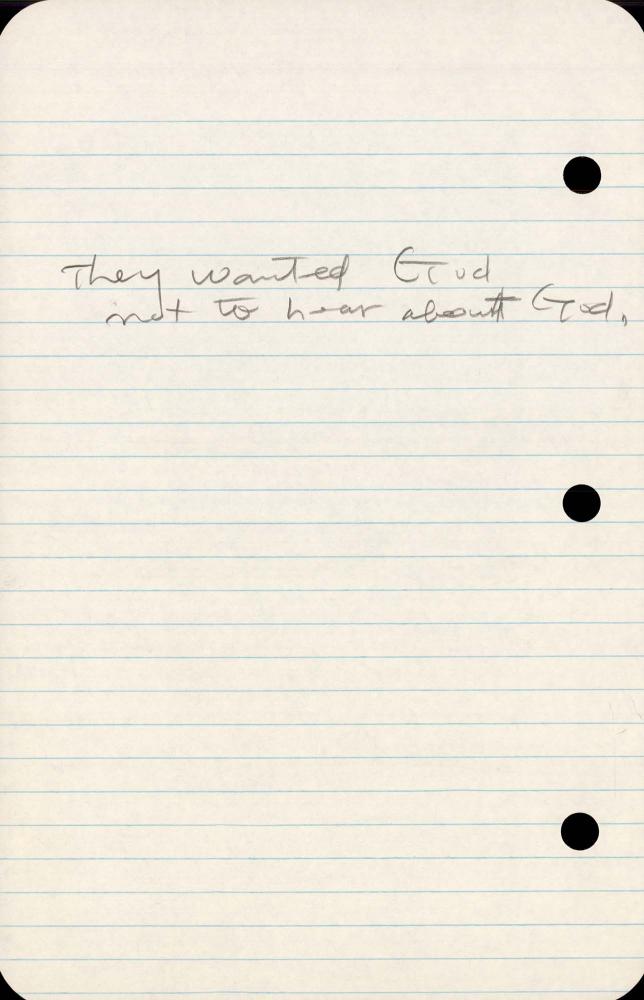 They wanted God
not to hear about God.